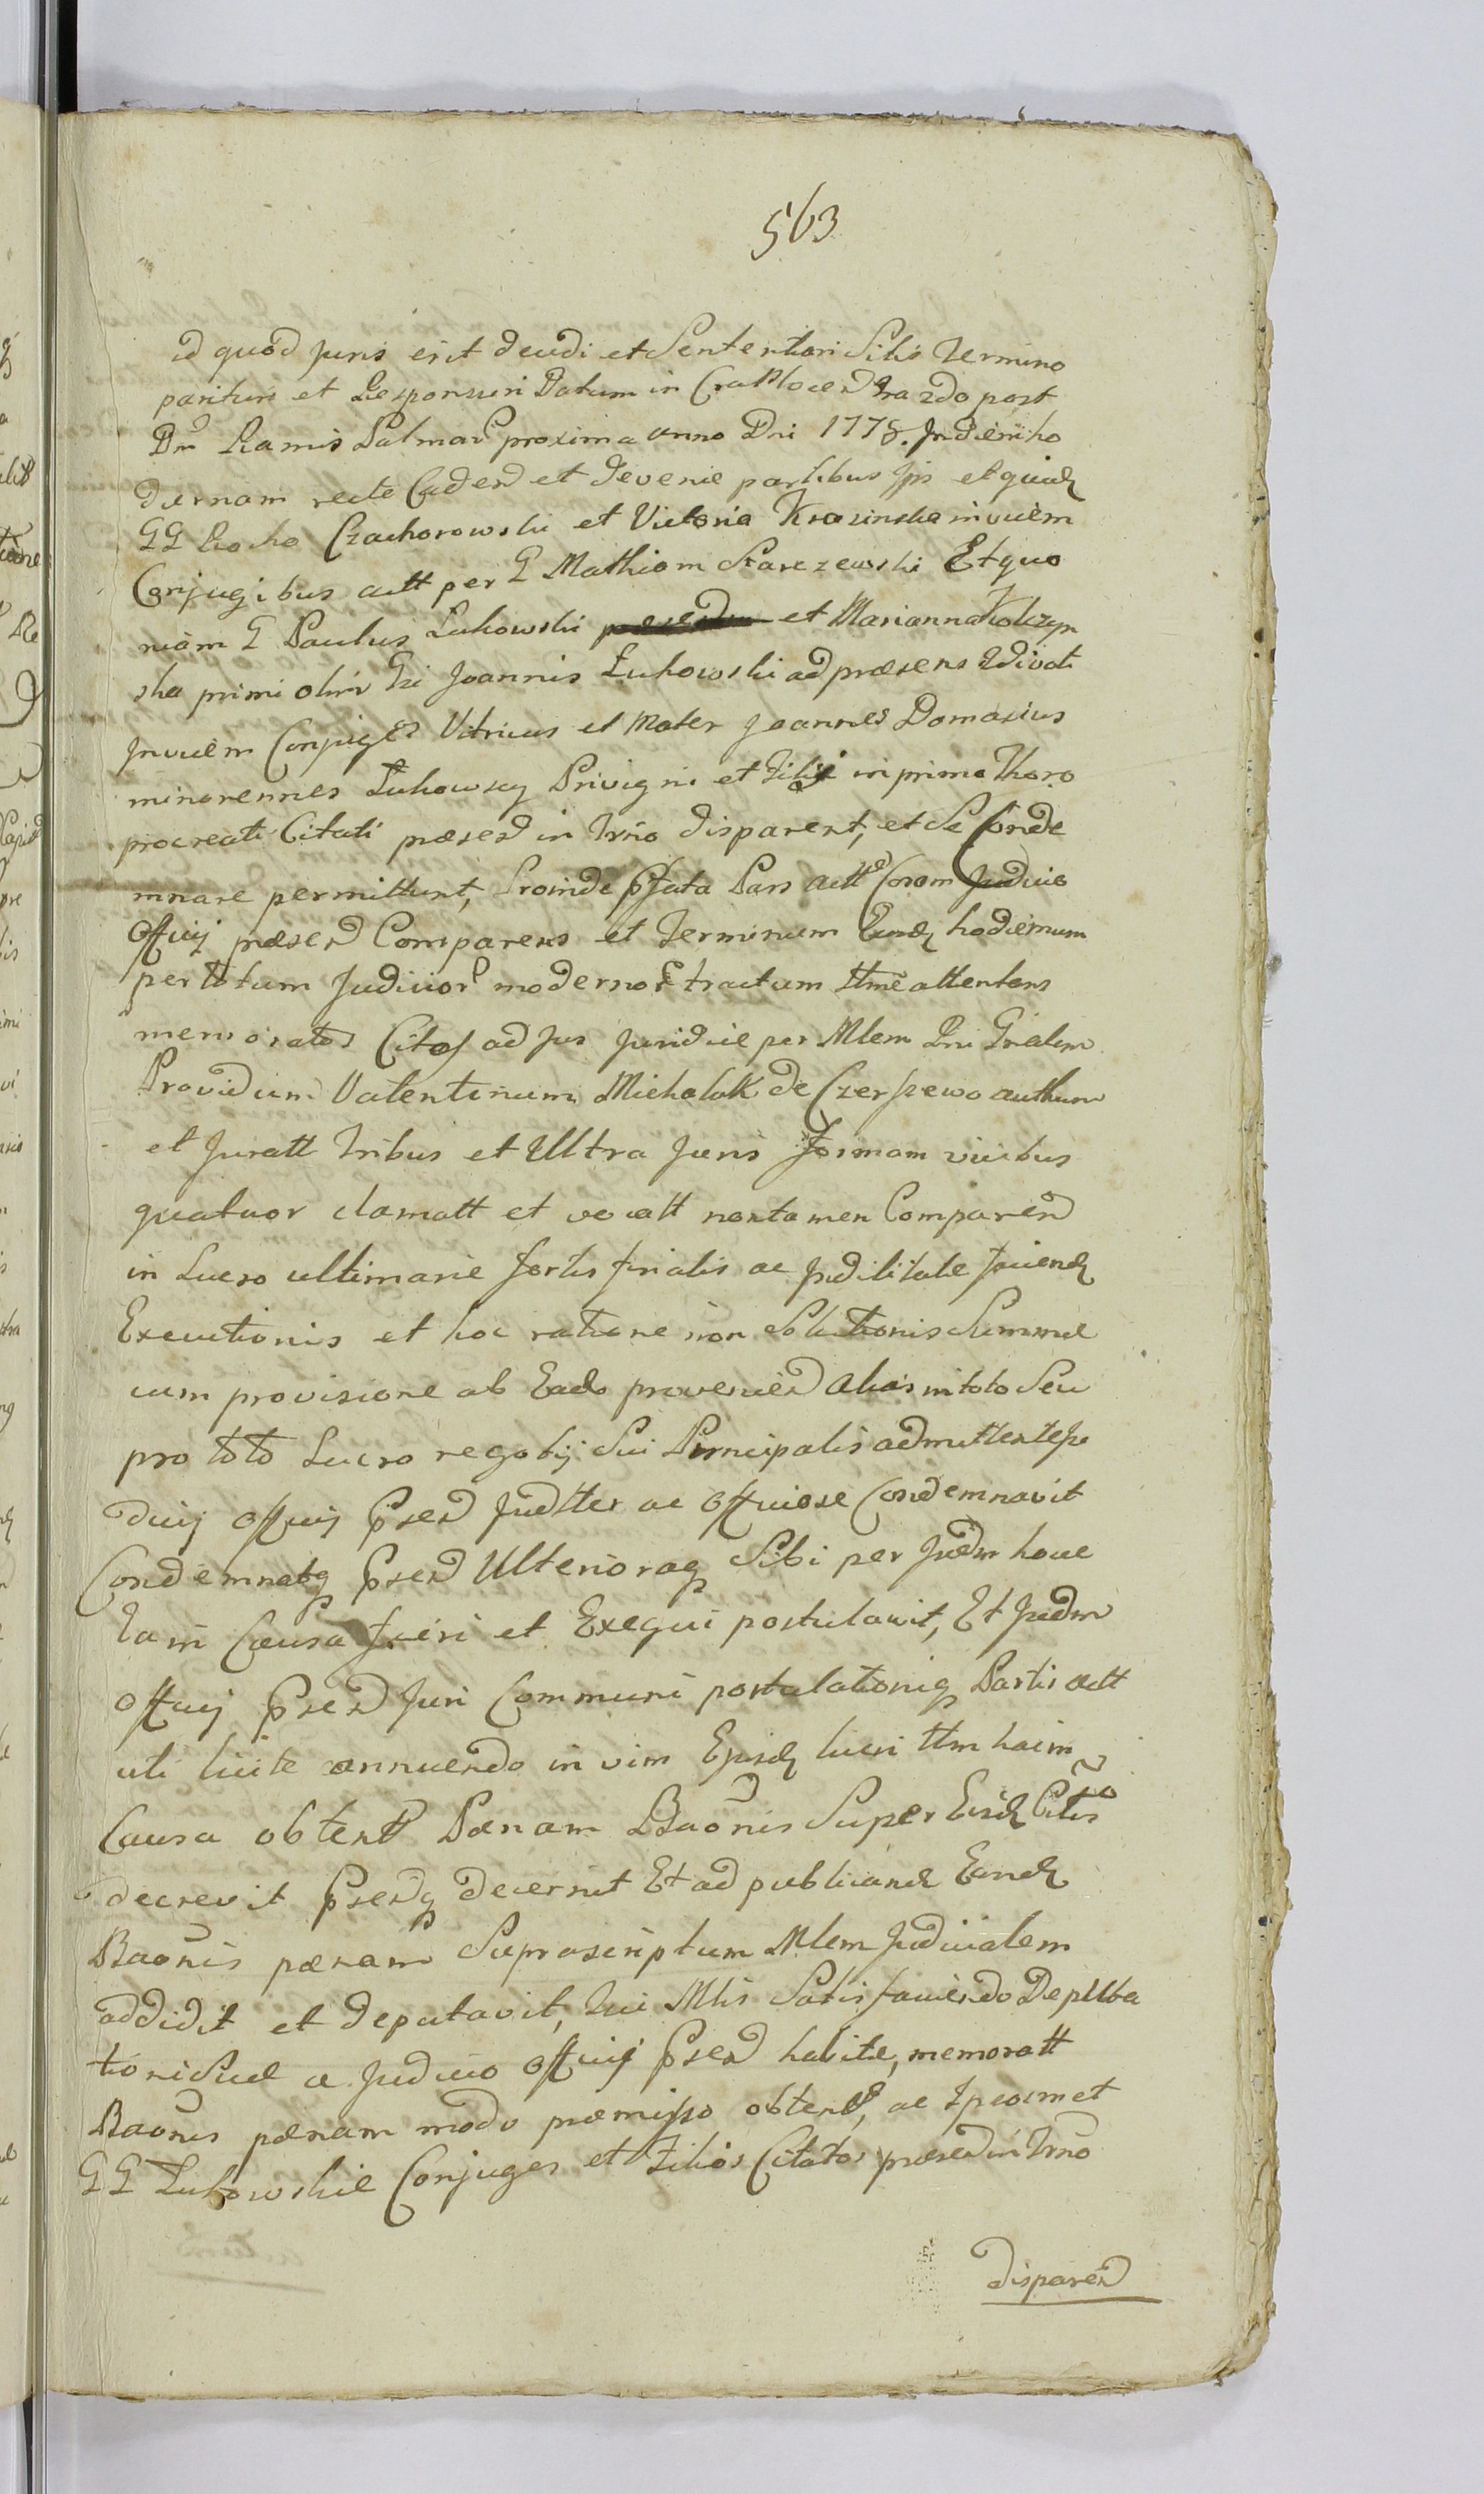 563
id quod Juris erit deudi et Sententiari Sitis Termino
parituri et Responsuri Datum in Crastloced Fra 2do post
Dm Ramis Palmar proxima anno Dni 1778. Indiem ho
diernam recte Caden et devenie partibus Jpis et quidq
GG Rocho Czachorowski et Victoria Krasinska invicem
Conjugibus actt per G Mathiam Skarczewski Et quo
niam G Paulus Łukowski et Marianna Kolczyn
ska primi olim Gi Joannis Łukowski ad præsens 2divoti
Invicem Conjuges Vitricus et Mater Joannes Domasius
minorennes Łukowscy Privigni et Filij in primo Thoro
procreati Citati præsend in Trno disparent, et se Conde
mnare permittunt, Proinde Pfata Pars actt Coram Judicio
Officij præsen Comparens et Terminum Eundq hodiernum
per totum Judicior modernor tractum ttme attentans
memoratos Citos ad Jus Juridice per Mlem Rni Gnalem
Providum Valentinum Michalak de Czerszewo authum
et Juratt Tribus et Ultra Juris Formam vicibus
quatuor clamatt et vocatt nontamen Comparen
in Lucro ultimarie sortis finalis ac Judititate faciendq
Executionis et hoc ratione non Solutionis Summæ
cum provisione ab Eads provenien Alias in toto Seu
pro toto Lucro negotij Sui Principalis admittente Ju
dicij Officij Psen Judtter ac Officiose Condemnavit
Condemnatq Psen Ulterioraq Sibi per Judm hocce
Tam in Causa fieri et Exequi postulavit, Et Judm
Officij Psen Juri Communi postulationiq Partis actt
uti licite annuendo in vim Ejusdq lucri ttm hacim
Causa obtent Pænam Baonis Super Eisdq Citis
decrevit Psenq decernit Et ad publicandq Eandq
Baonis pænam Suprascriptum Mlem Judicialem
addidit et deputavit, Qui Mlis Satisfaciendo Deputa
tioni Suæ a Judicio Officij Psen habitæ, memoratt
Baonis pænam modo præmisso obtent, ac Ipsosmet
GG Łukowskie Conjuges et Filios Citatos præsen in Trno
disparen